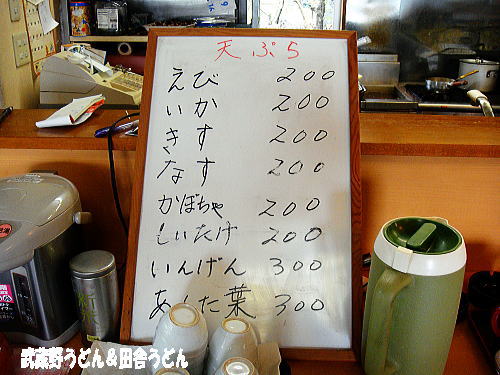 天ぷら
えび 200
いか 200
きす 200
なす 200
かぼちゃ 200
しいたけ 200
いんげん 300
あした葉 300
武蔵野うどん&田舎うどん